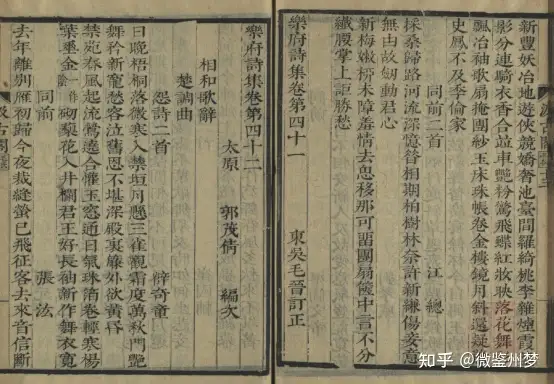 新豐妖冶地遊俠競嬌奢池臺間羅綺桃李雜煙霞
影分連騎衣香合竝車艷粉驚飛蝶紅妝映落花舞
飄冶袖歌扇掩團紗玉床珠帳卷金樓鏡月斜還疑
史鳳不及季倫家
同前二首 江總
採桑歸路河流深憶昔相期柏樹林奈許新縑傷妾意
無由故劒動君心
新梅嫩柳未障羞情去恩移那可留團扇篋中言不分
纖腰掌上詎勝愁
樂府詩集卷第四十一 東吳毛晉訂正
樂府詩集卷第四十二
太原 郭茂倩 編次
相和歌辭
楚調曲
怨詩二首 薛奇童
日晚梧桐落微寒入禁垣月懸三雀觀霜度萬秋門艷
舞矜新寵愁容泣舊恩不堪深殿裏簾外欲黃昏
禁苑春風起流鶯遶合懽玉窓通日氣珠箔卷輕寒楊
葉垂金陰一作砌梨花入井欄君王好長袖新作舞衣寬
同前 張汯
去年離別雁初歸今夜裁縫螢已飛征客去來音信斷
汲古閣
知乎 @微鉴州梦